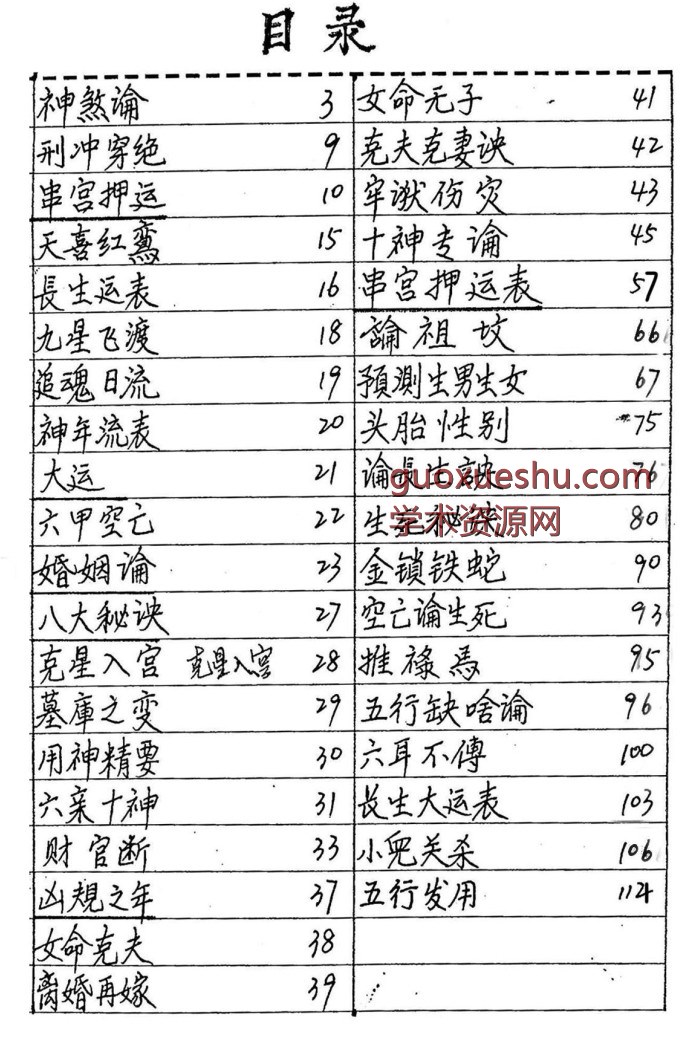 目录
神煞論 3
刑冲穿绝 9
串宫押运 10
天喜红鸾 15
長生运表 16
九星飞渡 18
追魂日流 19
神年流表 20
大运 21
六甲空亡 22
婚姻論 23
八大秘诀 27
克星入宫 克星入宫 28
墓庫之变 29
用神精要 30
六亲十神 31
财官断 33
凶規之年 37
女命克夫 38
离婚再嫁 39
女命无子 41
克夫克妻诀 42
牢狱伤灾 43
十神专论 45
串宫押运表 57
論祖坟 66
預测生男生女 67
头胎性别 75
论長生訣 76
生死秘诀 80
金锁铁蛇 90
空亡論生死 93
推禄馬 95
五行缺啥論 96
六耳不傳 100
长生大运表 103
小兜关杀 106
五行发用 114
guoxueshu.com
学术资源网